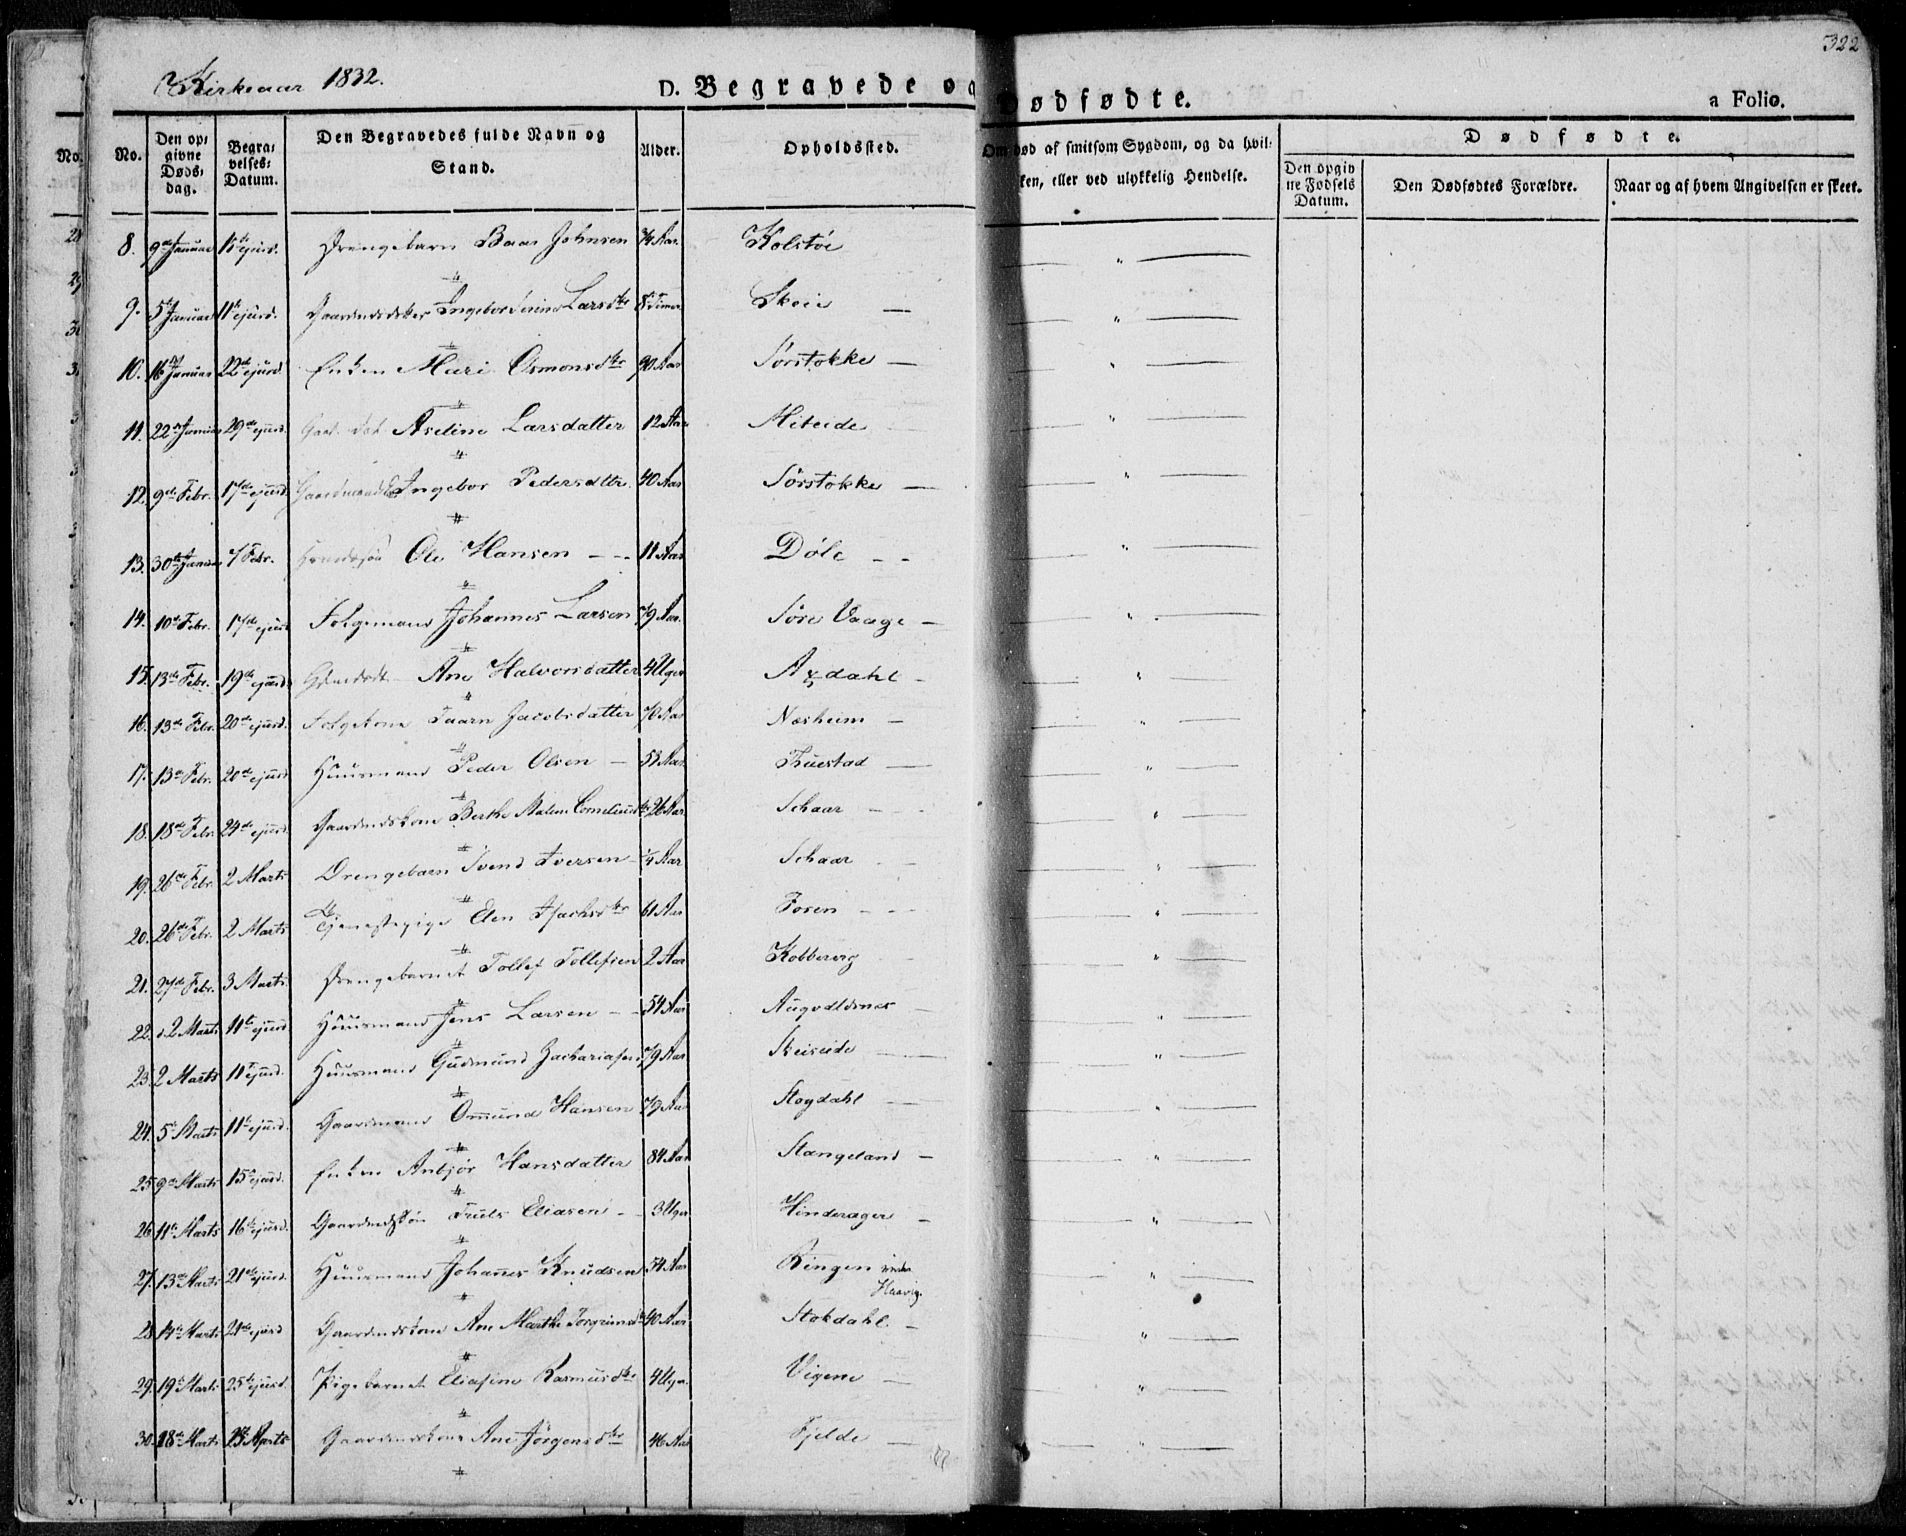 Kirkeaar 1832.
D. Begravede og Dødfødte.
322
a Folio.
No.
Den op-
givne
Døds-
dag.
Begra-
velses-
Datum.
Den Begravedes fulde Navn og
Stand.
Alder.
Opholdssted.
Om død af smitsom Sygdom, og da hvil-
ken, eller ved ulykkelig Hendelse.
Dødfødte.
Den opgiv
ne Fødsels
Datum.
Den Dødfødtes Forældre.
Naar og af hvem Angivelsen er skeet.
8. 9de Januar ejusd. Drengebarn Baar Johnsen 3/4 Aar Kolstøe
9. 5te Januar 11te ejusd. Ingebor Serine Larsdtr 8te Timer Skeie —
10. 16de Januar 22de ejusd. Enken Mari Osmonsdtr 90 Aar Sørstokke —
11. 22de Januar 29de ejusd. Aseline Larsdatter 12 Aar Miteide —
12. 9de Febr. 17de ejusd. Ingebor Pedersdttr 40 Aar Sørstokke —
13. 30te Januar 7 Febr. Ole Hansen 11 Aar Døle
14. 10de Febr. 17de ejusd. Folgemand Johannes Larsen 79 Aar. Søre Vaage —
15. 13de Febr. 19de ejusd. Ane Halvorsdatter 4 Uger Axdahl
16. 13de Febr. 20de ejusd. Folgekone Taarn Jacobsdatter 70 Aar Næsheim —
17. 13de Febr. 20de ejusd. Huusmand Peder Olsen — 58 Aar Fuestad —
18. 18de Febr. 24de ejusd. Gaardmdskone Berthe Malene Corneliusdtr 26 Aar Schaar
19. 26de Febr. 2 Marts Drengebarn Svend Iversen 1/4 Aar Schaar
20. 26de Febr. 2 Marts Tjenestepige Elen Isachsdtr 61 Aar Fosen
21. 27de Febr. 3 Marts. Drengebarnet Tollef Tollefsen 2 Aar Kobbervig
22. d. 2 Marts 11te ejusd Huusmand Jens Larsen 54 Aar Augvaldsnes
23. 2 Marts 11te ejusd. Huusmand Gudmund Zachariasen 79 Aar Skeiseide
24. 5te Marts 11te ejusd. Gaardmand Ommund Hansen 79 Aar Stogdahl
25. 9de Marts 15te ejusd. Enken Anbjør Hansdatter 84 Aar Stangeland —
26. 11te Marts 16de ejusd. Gaardmdssøn Truls Eliasen 3 Uger Hinderager
27. 13de Marts 21de ejusd. Huusmand Johannes Knudsen 54 Aar Ringen under
Haavig.
28. 14de Marts 21de ejusd Gaardmdskone Ane Marthe Torgrimsd 40 Aar Stokdahl.
29. 19de Marts 25de ejusd. Pigebarnet Eliasine Rasmusdtr 4 Uger. Vigene
30. 18de Marts 25de Marts Gaardmdskone Ane Jørgensdtr 46 Aar Fjelde